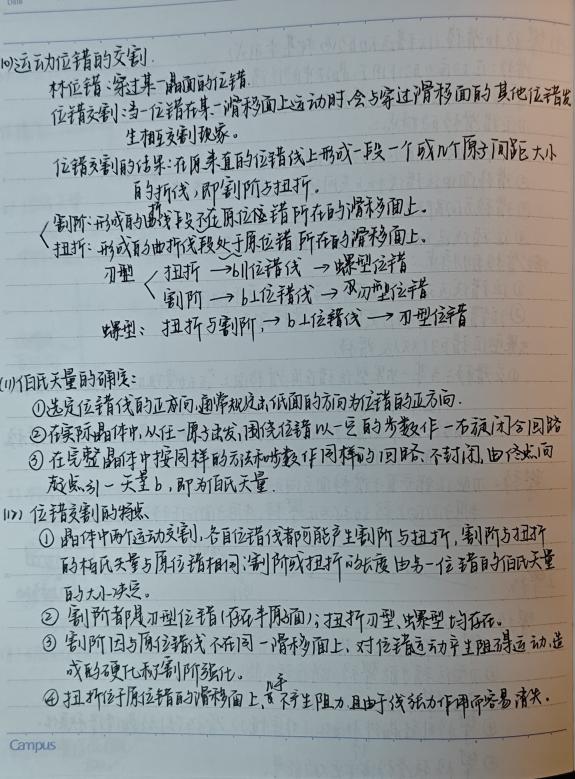 (10)运动位错的交割.
林位错:穿过某一晶面的位错.
位错交割:当一位错在某一滑移面上运动时,会与穿过滑移面的其他位错发
生相互交割现象。
位错交割的结果:在原来直的位错线上形成一段一个或几个原子间距大小
的折线,即割阶与扭折。
割阶:形成的曲折线段不在原位错所在的滑移面上。
扭折:形成的曲折线段处于原位错所在的滑移面上。
刃型 扭折→b∥位错线→螺型位错
割阶→b⊥位错线→刃型位错
螺型: 扭折与割阶,→b⊥位错线→刃型位错
(11)伯氏矢量的确定:
①选定位错线的正方向,通常规定出纸面的方向为位错的正方向.
②在实际晶体中,从任一原子出发,围绕位错以一定的步数作一右旋闭合回路
③在完整晶体中按同样的方法和步数作同样的回路、不封闭,由终点向
起点引一矢量b,即为伯氏矢量.
(12) 位错交割的特点
①晶体中两个运动交割,各自位错线都可能产生割阶与扭折,割阶与扭折
的柏氏矢量与原位错相同;割阶或扭折的长度由另一位错的伯氏矢量
的大小决定。
②割阶都是刃型位错(存在半原子面);扭折刃型、螺型均存在。
③割阶因与原位错线不在同一滑移面上,对位错运动产生阻碍运动,造
成的硬化称割阶强化。
④扭折位于原位错的滑移面上、几乎不产生阻力,且由于线张力作用而容易消失.
Campus